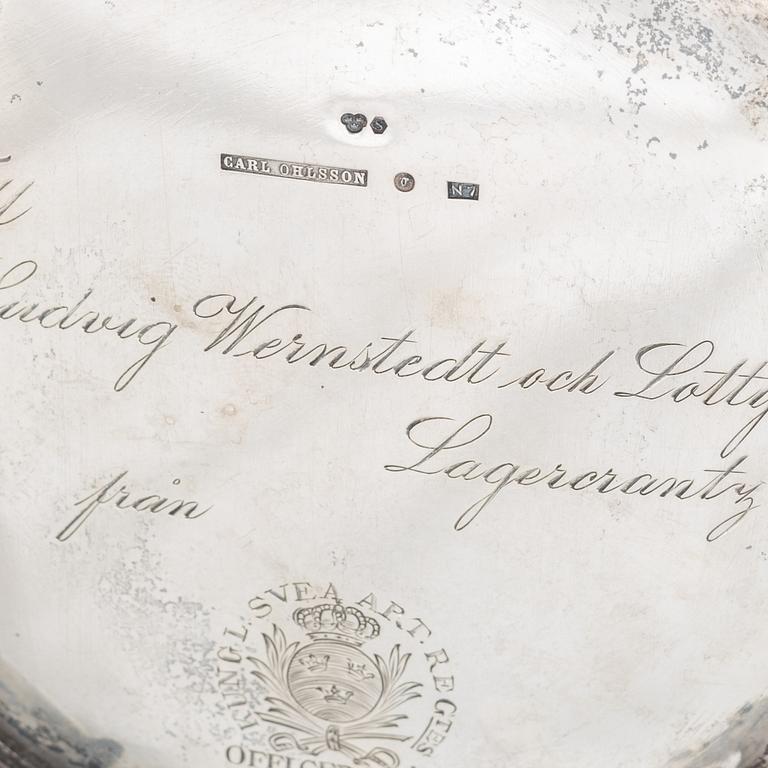 S
CARL OHLSSON
N7
Ludvig Wernstedt och Lotty
Lagercrantz
från
KUNGL. SVEA ART. REGTES